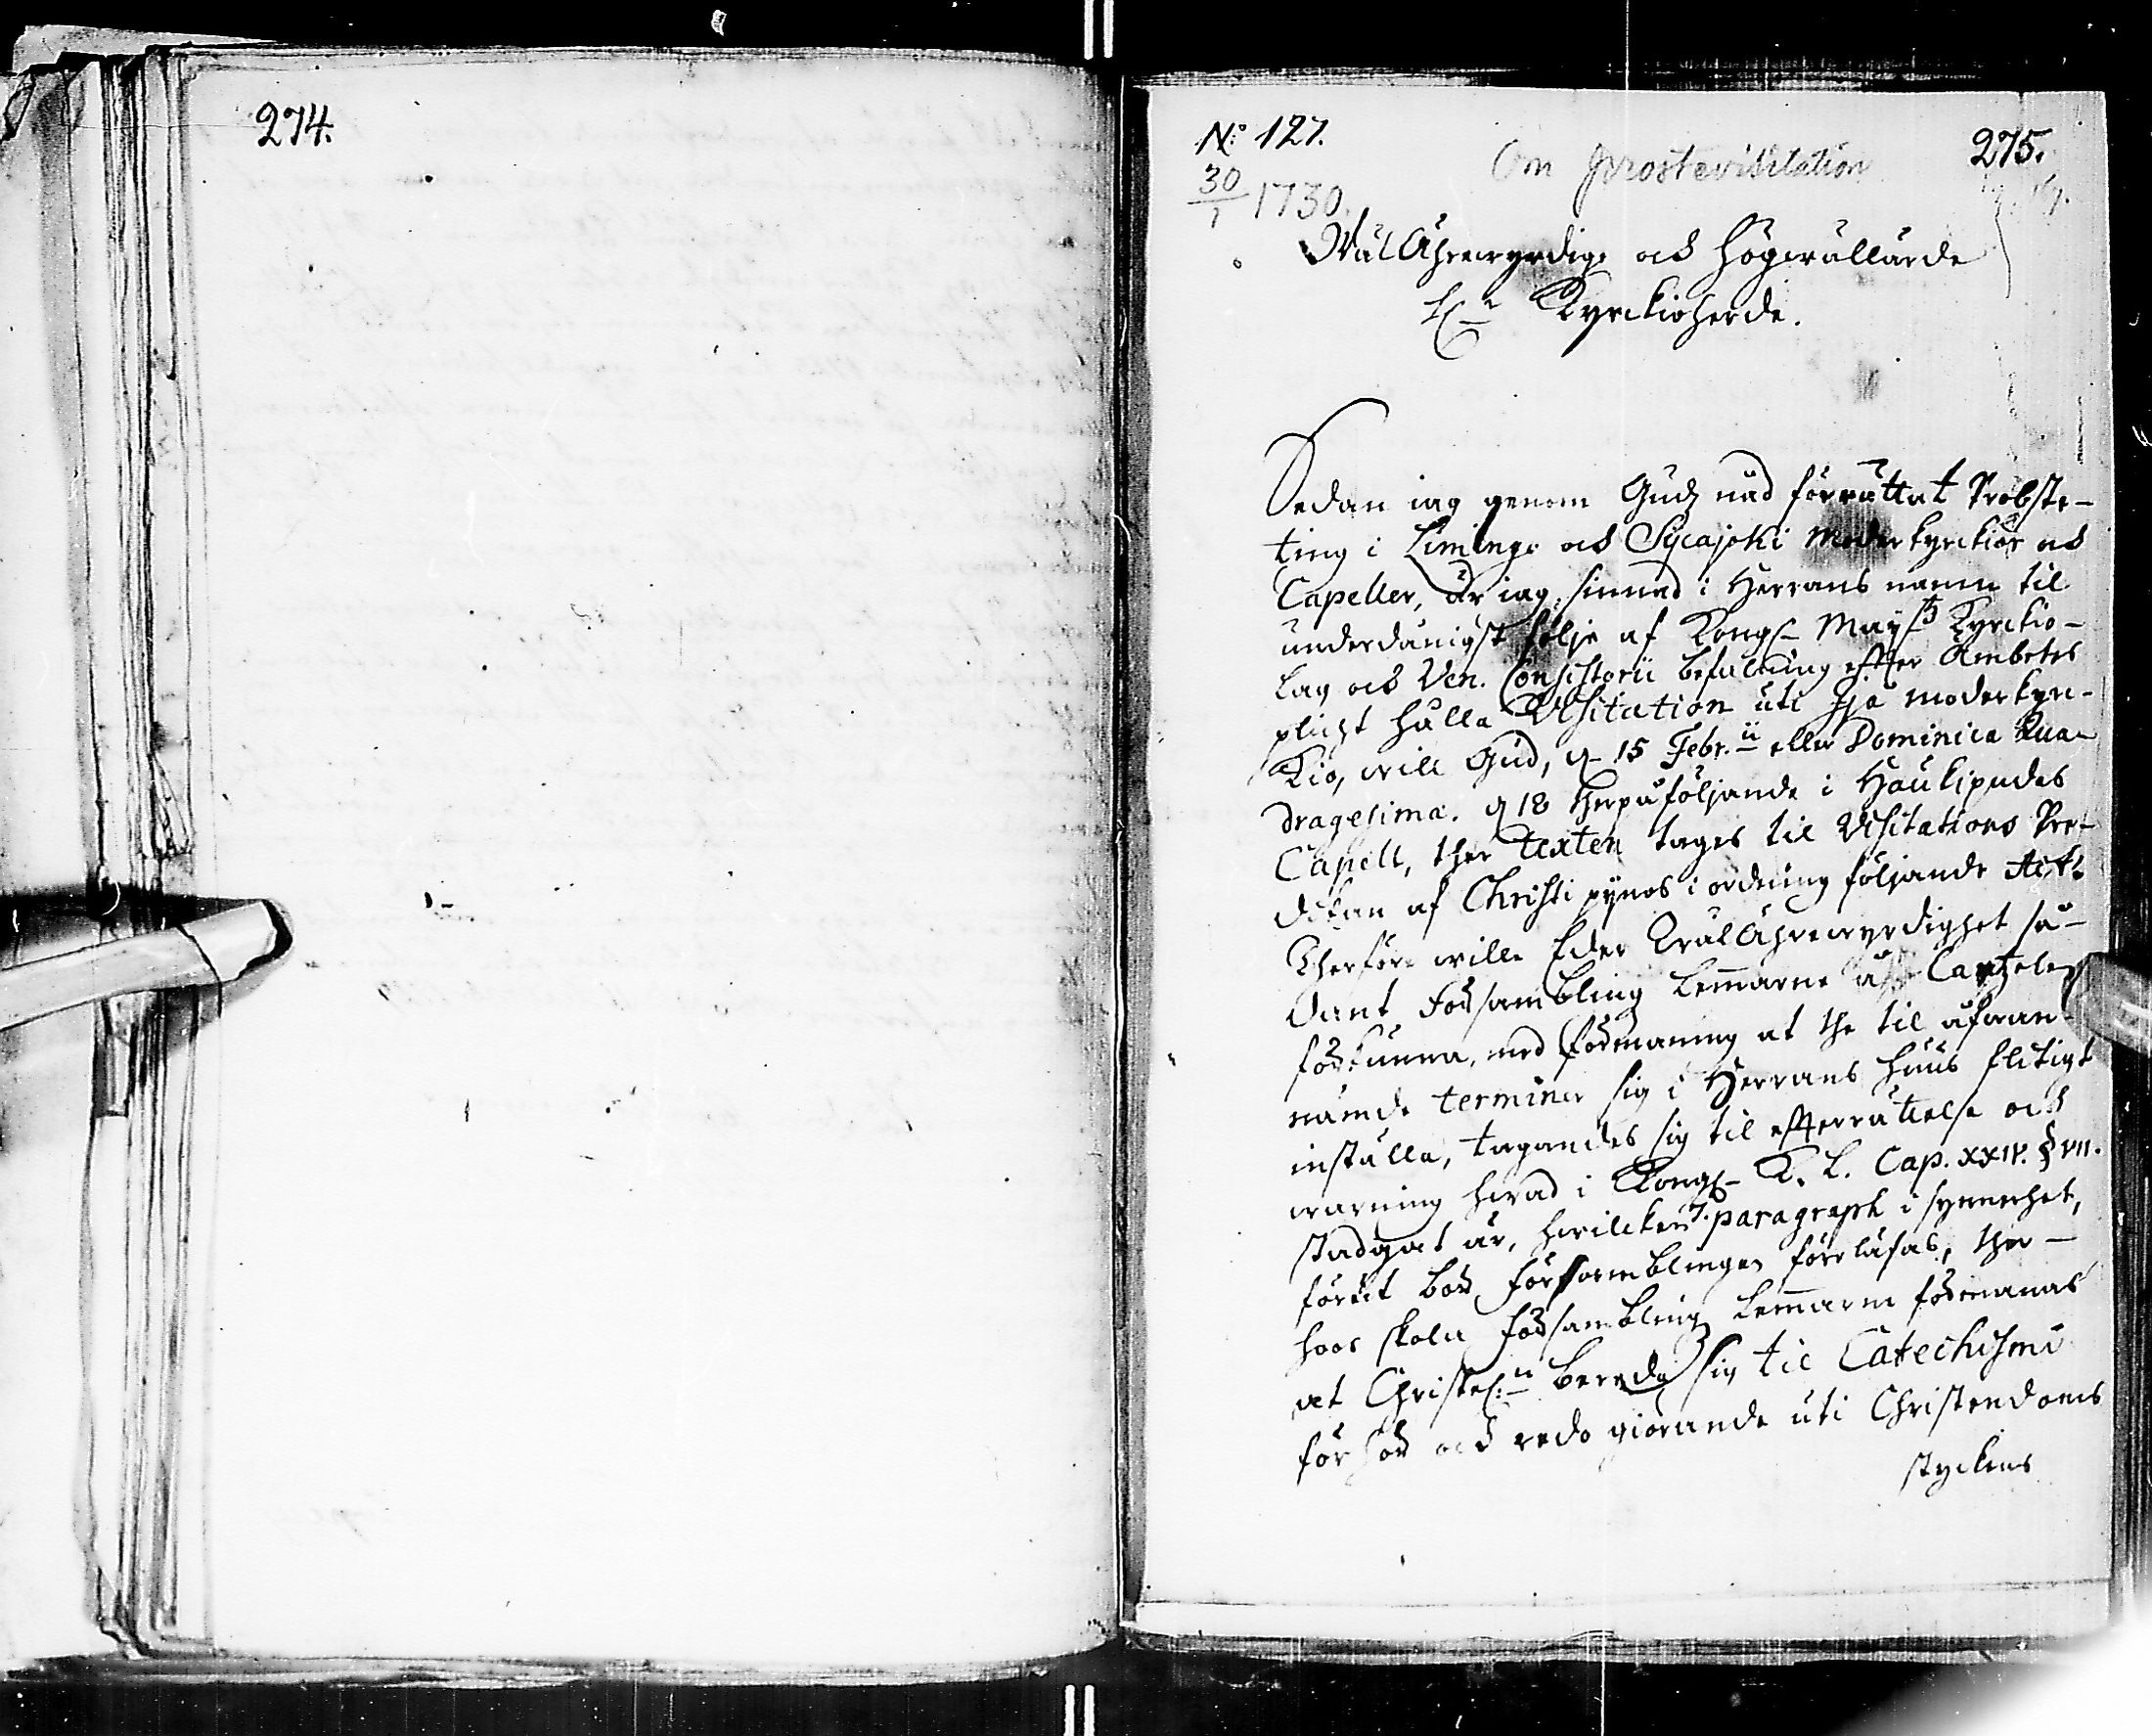 274.
N:o 127.
275.
Om prostevisitation
30/1 1730.
WälÄhrewyrdige och Högwällärde
H:r Kyrckioherde.
Sedan iag genom Gudz nåd förrättat Probste-
ting i Limingo och Sijcajoki Moderkyrckior och
Capeller, är iag sinnad i Herrans namn til
underdånigst följe af Kongl. May:tz Kyrckio-
lag och Ven. Consistorii befalning efter Ambetes
plicht hålla Visitation uti Ijo moderkyrc-
kio, will Gud, d. 15 Febr:ii eller Dominica Qua-
dragesima. d 18 therpåföljande i Haukipudas
Capell, ther texten tages til Visitations Pre-
dikan af Christi pijnos i ordning följande Act.
Therföre wille Eder WälÄhrewyrdighet så-
dant Församblings Lemmarne af Cantzelen
förkunna, med förmaning at the til ofwan-
nämde terminer sig i Herrans huus flitigt
inställa, tagandes sig til efterrättelse och
warning hwad i Kongl. K. L. Cap. XXIV. § VII.
stadgat är, hwilcken 7. paragraph i synnerhet,
förut bör församblingen föreläsas, ther-
hoos skola församblings Lemmarne förmanas
at Christel:n bereda sig til Catechismi
förhör och redo giörande uti Christendoms
styckens